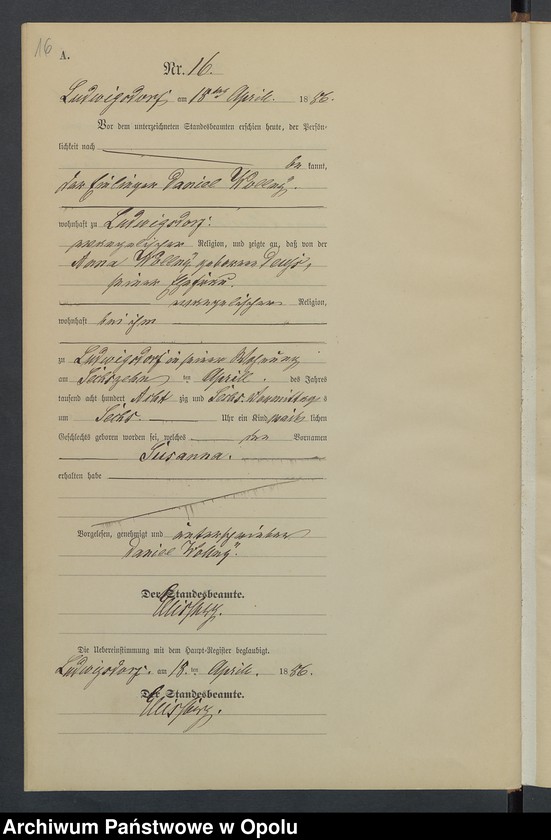 16
A.
Nr. 16.
Ludwigsdorf am 18ten April 1886.
Vor dem unterzeichneten Standesbeamten erschien heute, der Persön-
lichkeit nach
be kannt,
der Einlieger Daniel Wollny.
wohnhaft zu Ludwigsdorf.
evangelischer Religion, und zeigte an, daß von der
Wollny geborene
seiner Ehefrau
evangelischer Religion,
wohnhaft bei ihm
zu Ludwigsdorf in seiner Wohnung
am Sechszehn ten Aprill. des Jahres
tausend acht hundert Acht zig und Sechs Vormittag s
um Sechs Uhr ein Kind weib lichen
Geschlechts geboren worden sei, welches den Vornamen
Susanna.
erhalten habe
Vorgelesen, genehmigt und unterschrieben
Daniel Wollny.
Der Standesbeamte.
Die Uebereinstimmung mit dem Haupt-Register beglaubigt.
Ludwigsdorf. am 18. ten April. 1886.
Der Standesbeamte.
Archiwum Państwowe w Opolu